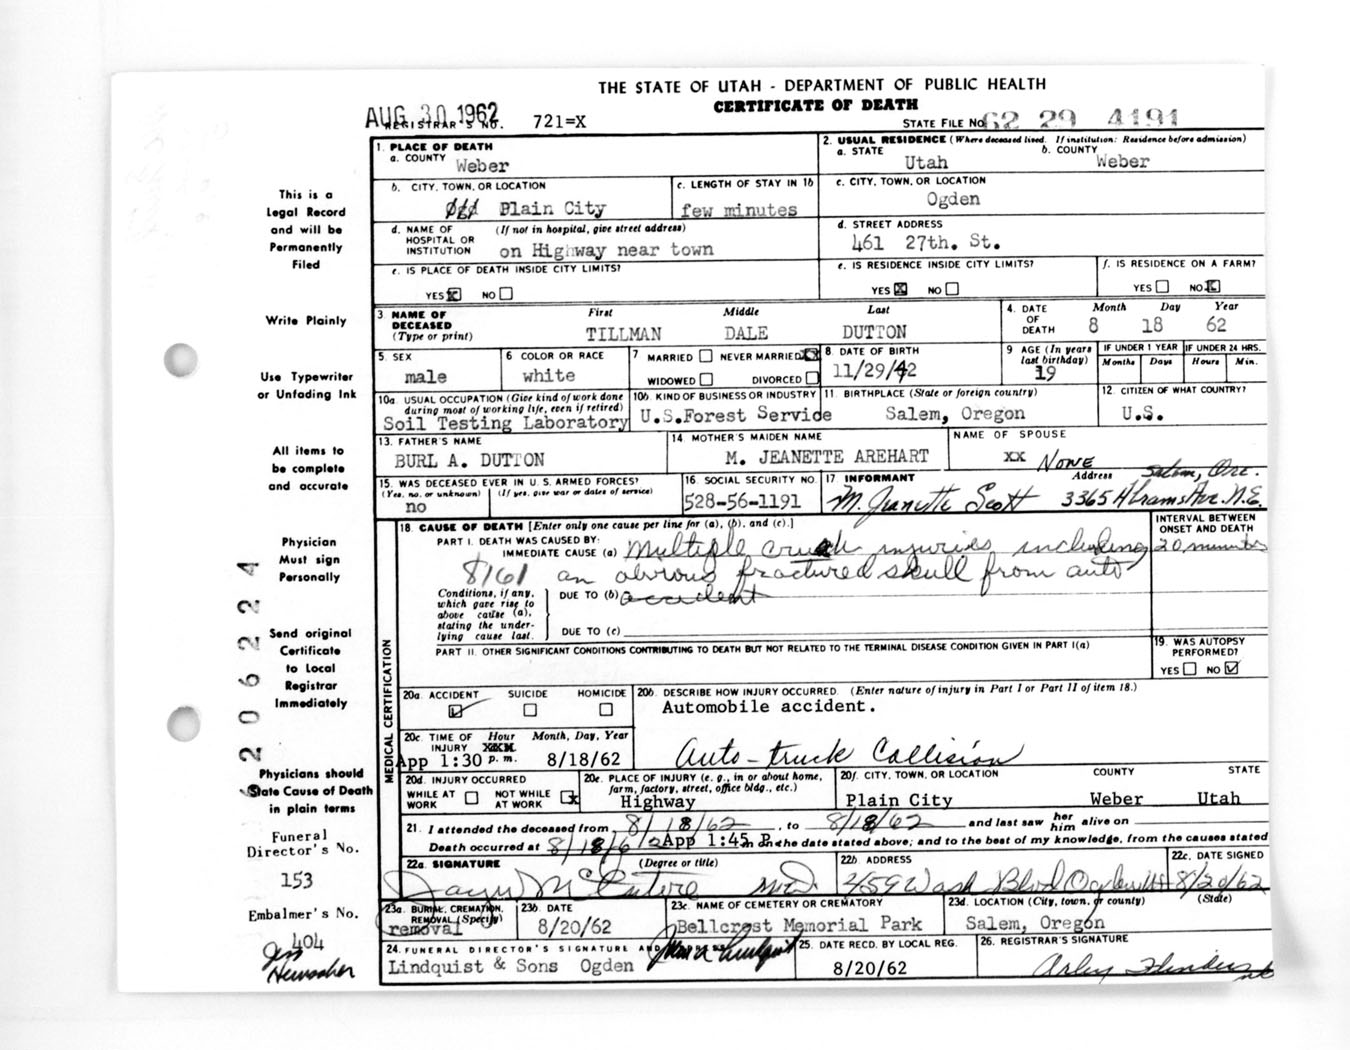 THE STATE OF UTAH - DEPARTMENT OF PUBLIC HEALTH
CERTIFICATE OF DEATH
AUG 30 1962
REGISTRAR'S NO. 721=X
STATE FILE NO. 62 29 4191
This is a
Legal Record
and will be
Permanently
Filed
Write Plainly
Use Typewriter
or Unfading Ink
All items to
be complete
and accurate
Physician
Must sign
Personally
Send original
Certificate
to Local
Registrar
Immediately
Physicians should
State Cause of Death
in plain terms
Funeral
Director's No.
153
Embalmer's No.
404
2062224
1. PLACE OF DEATH
a. COUNTY Weber
2. USUAL RESIDENCE (Where deceased lived. If institution: Residence before admission)
a. STATE Utah b. COUNTY Weber
b. CITY, TOWN, OR LOCATION Plain City
c. LENGTH OF STAY IN 1b few minutes
c. CITY, TOWN, OR LOCATION Ogden
d. NAME OF HOSPITAL OR INSTITUTION (If not in hospital, give street address) on Highway near town
d. STREET ADDRESS 461 27th. St.
e. IS PLACE OF DEATH INSIDE CITY LIMITS? YES X NO
e. IS RESIDENCE INSIDE CITY LIMITS? YES X NO
f. IS RESIDENCE ON A FARM? YES NO X
3. NAME OF DECEASED (Type or print) First TILLMAN Middle DALE Last DUTTON
4. DATE OF DEATH Month 8 Day 18 Year 62
5. SEX male
6 COLOR OR RACE white
7 MARRIED NEVER MARRIED X WIDOWED DIVORCED
8. DATE OF BIRTH 11/29/42
9 AGE (In years last birthday) 19
IF UNDER 1 YEAR Months Days
IF UNDER 24 HRS. Hours Min.
10a. USUAL OCCUPATION (Give kind of work done during most of working life, even if retired) Soil Testing Laboratory
10b. KIND OF BUSINESS OR INDUSTRY U.S.Forest Service
11. BIRTHPLACE (State or foreign country) Salem, Oregon
12. CITIZEN OF WHAT COUNTRY? U.S.
13. FATHER'S NAME BURL A. DUTTON
14. MOTHER'S MAIDEN NAME M. JEANETTE AREHART
NAME OF SPOUSE xx NONE
15. WAS DECEASED EVER IN U. S. ARMED FORCES? (Yes, no, or unknown) (If yes, give war or dates of service) no
16. SOCIAL SECURITY NO. 528-56-1191
17 INFORMANT M. Jeanette Scott Address 3365 Abrams Ave. N.E. Salem, Ore.
MEDICAL CERTIFICATION
18. CAUSE OF DEATH [Enter only one cause per line for (a), (b), and (c).]
INTERVAL BETWEEN ONSET AND DEATH
PART I. DEATH WAS CAUSED BY:
IMMEDIATE CAUSE (a) Multiple crush injuries including 20 minutes
8161 an obvious fractured skull from auto
Conditions, if any, which gave rise to above cause (a), stating the underlying cause last.
DUE TO (b) accident
DUE TO (c)
PART II. OTHER SIGNIFICANT CONDITIONS CONTRIBUTING TO DEATH BUT NOT RELATED TO THE TERMINAL DISEASE CONDITION GIVEN IN PART I(a)
19. WAS AUTOPSY PERFORMED? YES NO ✓
20a. ACCIDENT ✓ SUICIDE HOMICIDE
20b. DESCRIBE HOW INJURY OCCURRED. (Enter nature of injury in Part I or Part II of item 18.)
Automobile accident.
Auto-truck Collision
20c. TIME OF INJURY Hour App 1:30 p.m. Month, Day, Year 8/18/62
20d. INJURY OCCURRED WHILE AT WORK NOT WHILE AT WORK X
20e. PLACE OF INJURY (e. g., in or about home, farm, factory, street, office bldg., etc.) Highway
20f. CITY, TOWN, OR LOCATION Plain City COUNTY Weber STATE Utah
21. I attended the deceased from 8/18/62, to 8/18/62 and last saw her him alive on
Death occurred at 8/18/62 App 1:45 P.m on the date stated above; and to the best of my knowledge, from the causes stated
22a. SIGNATURE (Degree or title) M.D.
22b. ADDRESS Wash Blvd
22c. DATE SIGNED 8/20/62
23a. BURIAL, CREMATION, REMOVAL (Specify) removal
23b. DATE 8/20/62
23c. NAME OF CEMETERY OR CREMATORY Bellcrest Memorial Park
23d. LOCATION (City, town, or county) (State) Salem, Oregon
24. FUNERAL DIRECTOR'S SIGNATURE AND ADDRESS Lindquist & Sons Ogden
25. DATE RECD. BY LOCAL REG. 8/20/62
26. REGISTRAR'S SIGNATURE